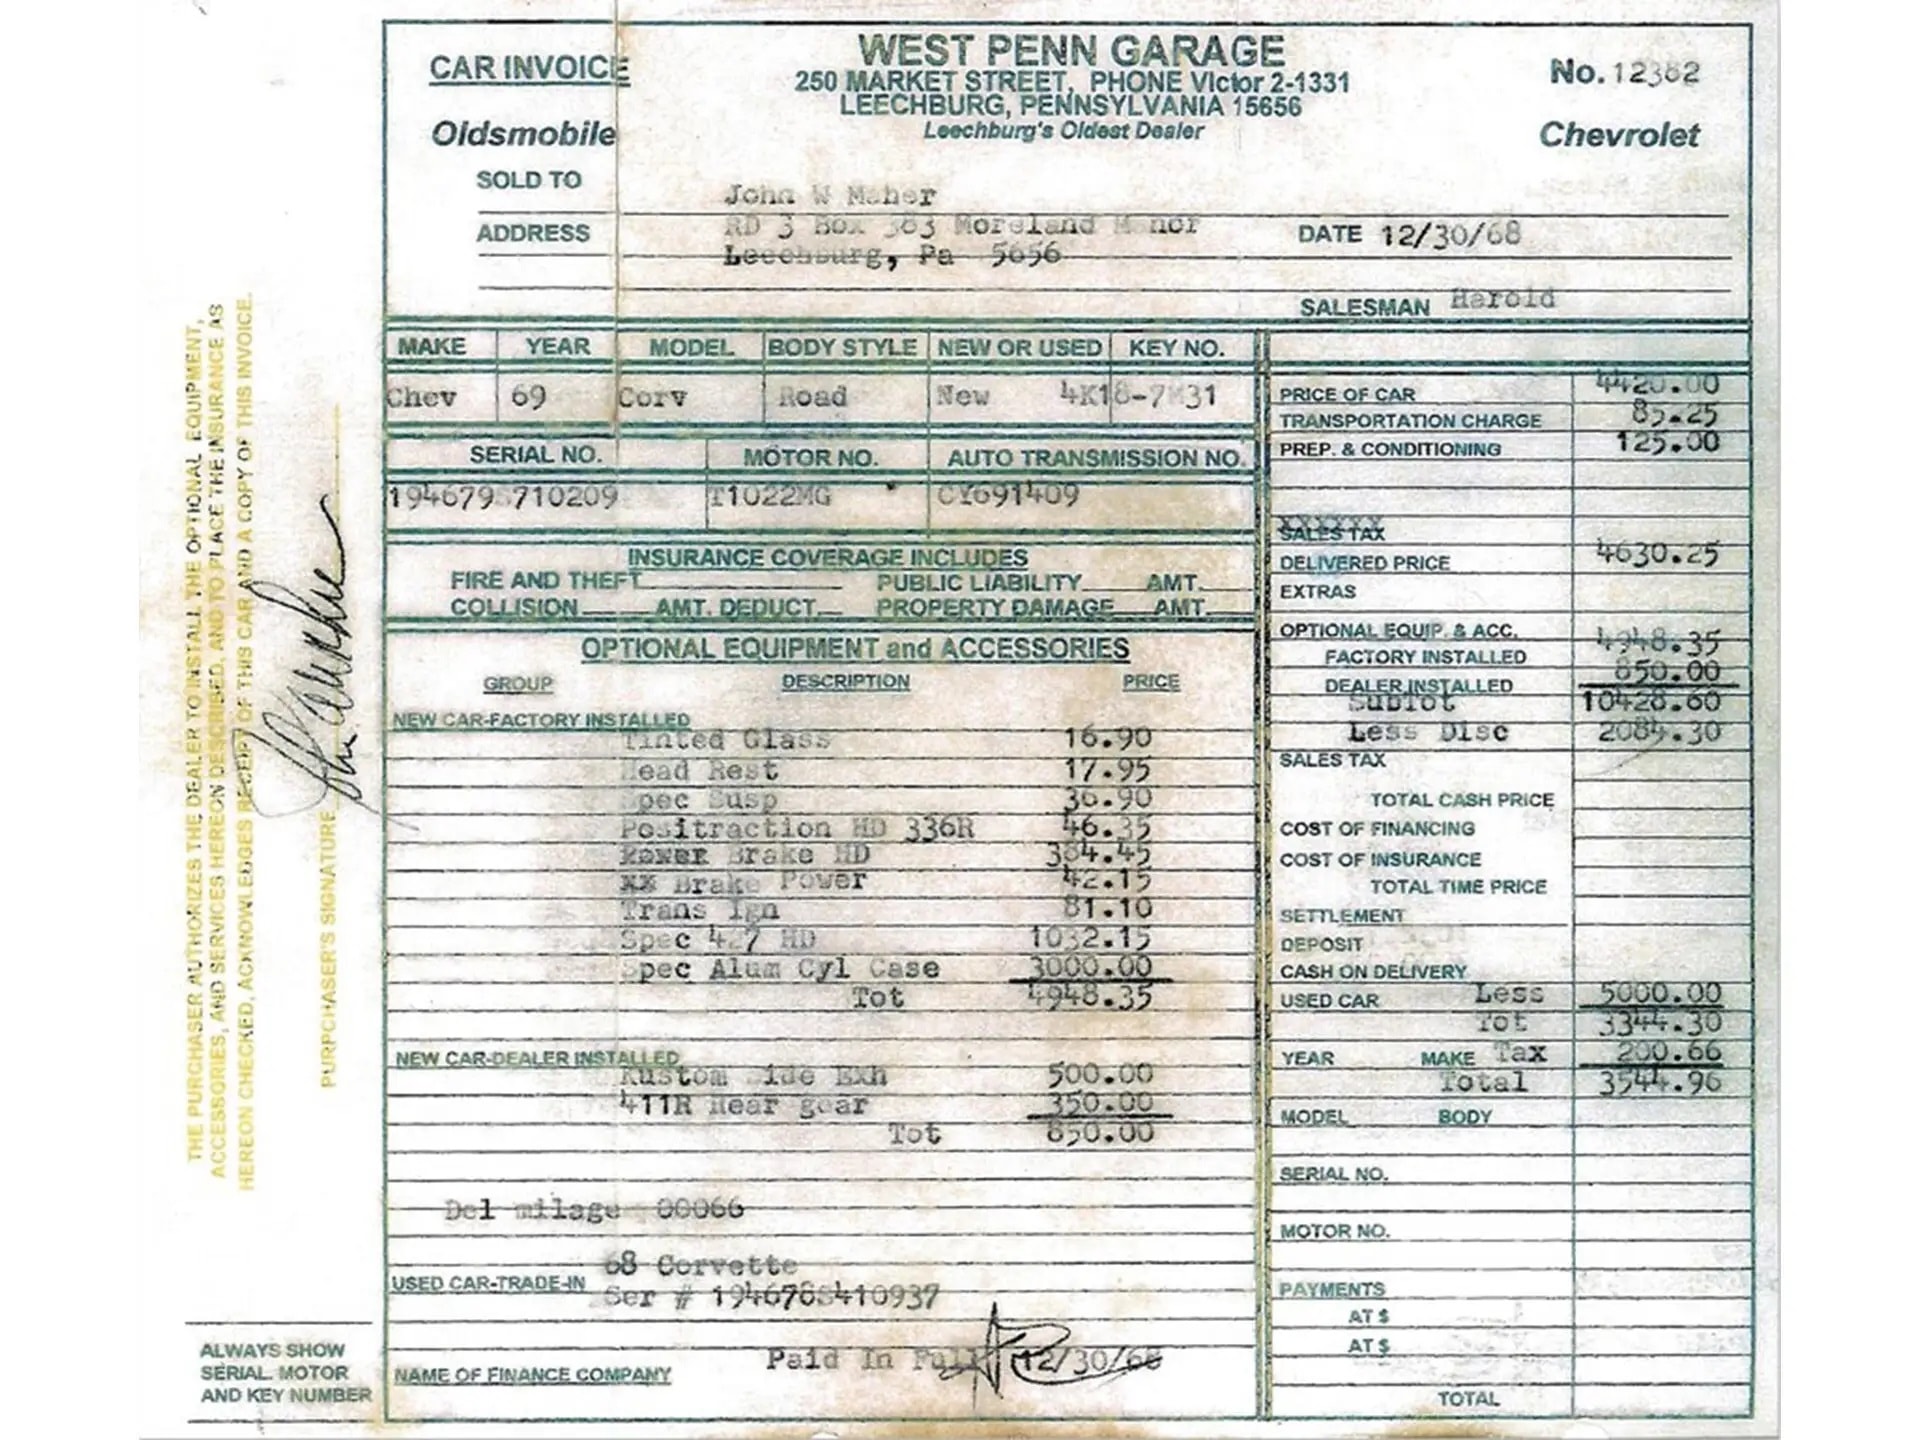 CAR INVOICE
WEST PENN GARAGE
250 MARKET STREET, PHONE Victor 2-1331
LEECHBURG, PENNSYLVANIA 15656
Leechburg's Oldest Dealer
No. 12382
Oldsmobile
Chevrolet
SOLD TO John W Maher
ADDRESS RD 3 Box 383 Moreland Manor
Leechburg, Pa 5656
DATE 12/30/68
SALESMAN Harold
MAKE YEAR MODEL BODY STYLE NEW OR USED KEY NO.
Chev 69 Corv Road New 4K18-7M31
SERIAL NO. MOTOR NO. AUTO TRANSMISSION NO.
194679S710209 T1022MG CY691409
INSURANCE COVERAGE INCLUDES
FIRE AND THEFT PUBLIC LIABILITY AMT.
COLLISION AMT. DEDUCT. PROPERTY DAMAGE AMT.
OPTIONAL EQUIPMENT and ACCESSORIES
GROUP DESCRIPTION PRICE
NEW CAR-FACTORY INSTALLED
Tinted Glass 16.90
Head Rest 17.95
Spec Susp 36.90
Positraction HD 336R 46.35
Power Brake HD 384.45
XX Brake Power 42.15
Trans Ign 81.10
Spec 427 HD 1032.15
Spec Alum Cyl Case 3000.00
Tot 4948.35
NEW CAR-DEALER INSTALLED
Kustom Side Exh 500.00
411R Rear gear 350.00
Tot 850.00
Del milage 00066
68 Corvette
USED CAR-TRADE-IN
Ser # 194678S410937
Paid In Full 12/30/68
NAME OF FINANCE COMPANY
PRICE OF CAR 4420.00
TRANSPORTATION CHARGE 85.25
PREP. & CONDITIONING 125.00
XXXXXX
SALES TAX
DELIVERED PRICE 4630.25
EXTRAS
OPTIONAL EQUIP. & ACC.
FACTORY INSTALLED 4948.35
DEALER INSTALLED 850.00
Subtot 10428.60
Less Disc 2084.30
SALES TAX
TOTAL CASH PRICE
COST OF FINANCING
COST OF INSURANCE
TOTAL TIME PRICE
SETTLEMENT
DEPOSIT
CASH ON DELIVERY
USED CAR Less 5000.00
Tot 3344.30
YEAR MAKE Tax 200.66
Total 3544.96
MODEL BODY
SERIAL NO.
MOTOR NO.
PAYMENTS
AT $
AT $
TOTAL
THE PURCHASER AUTHORIZES THE DEALER TO INSTALL THE OPTIONAL EQUIPMENT,
ACCESSORIES, AND SERVICES HEREON DESCRIBED, AND TO PLACE THE INSURANCE AS
HEREON CHECKED, ACKNOWLEDGES RECEIPT OF THIS CAR AND A COPY OF THIS INVOICE.
PURCHASER'S SIGNATURE
ALWAYS SHOW
SERIAL. MOTOR
AND KEY NUMBER